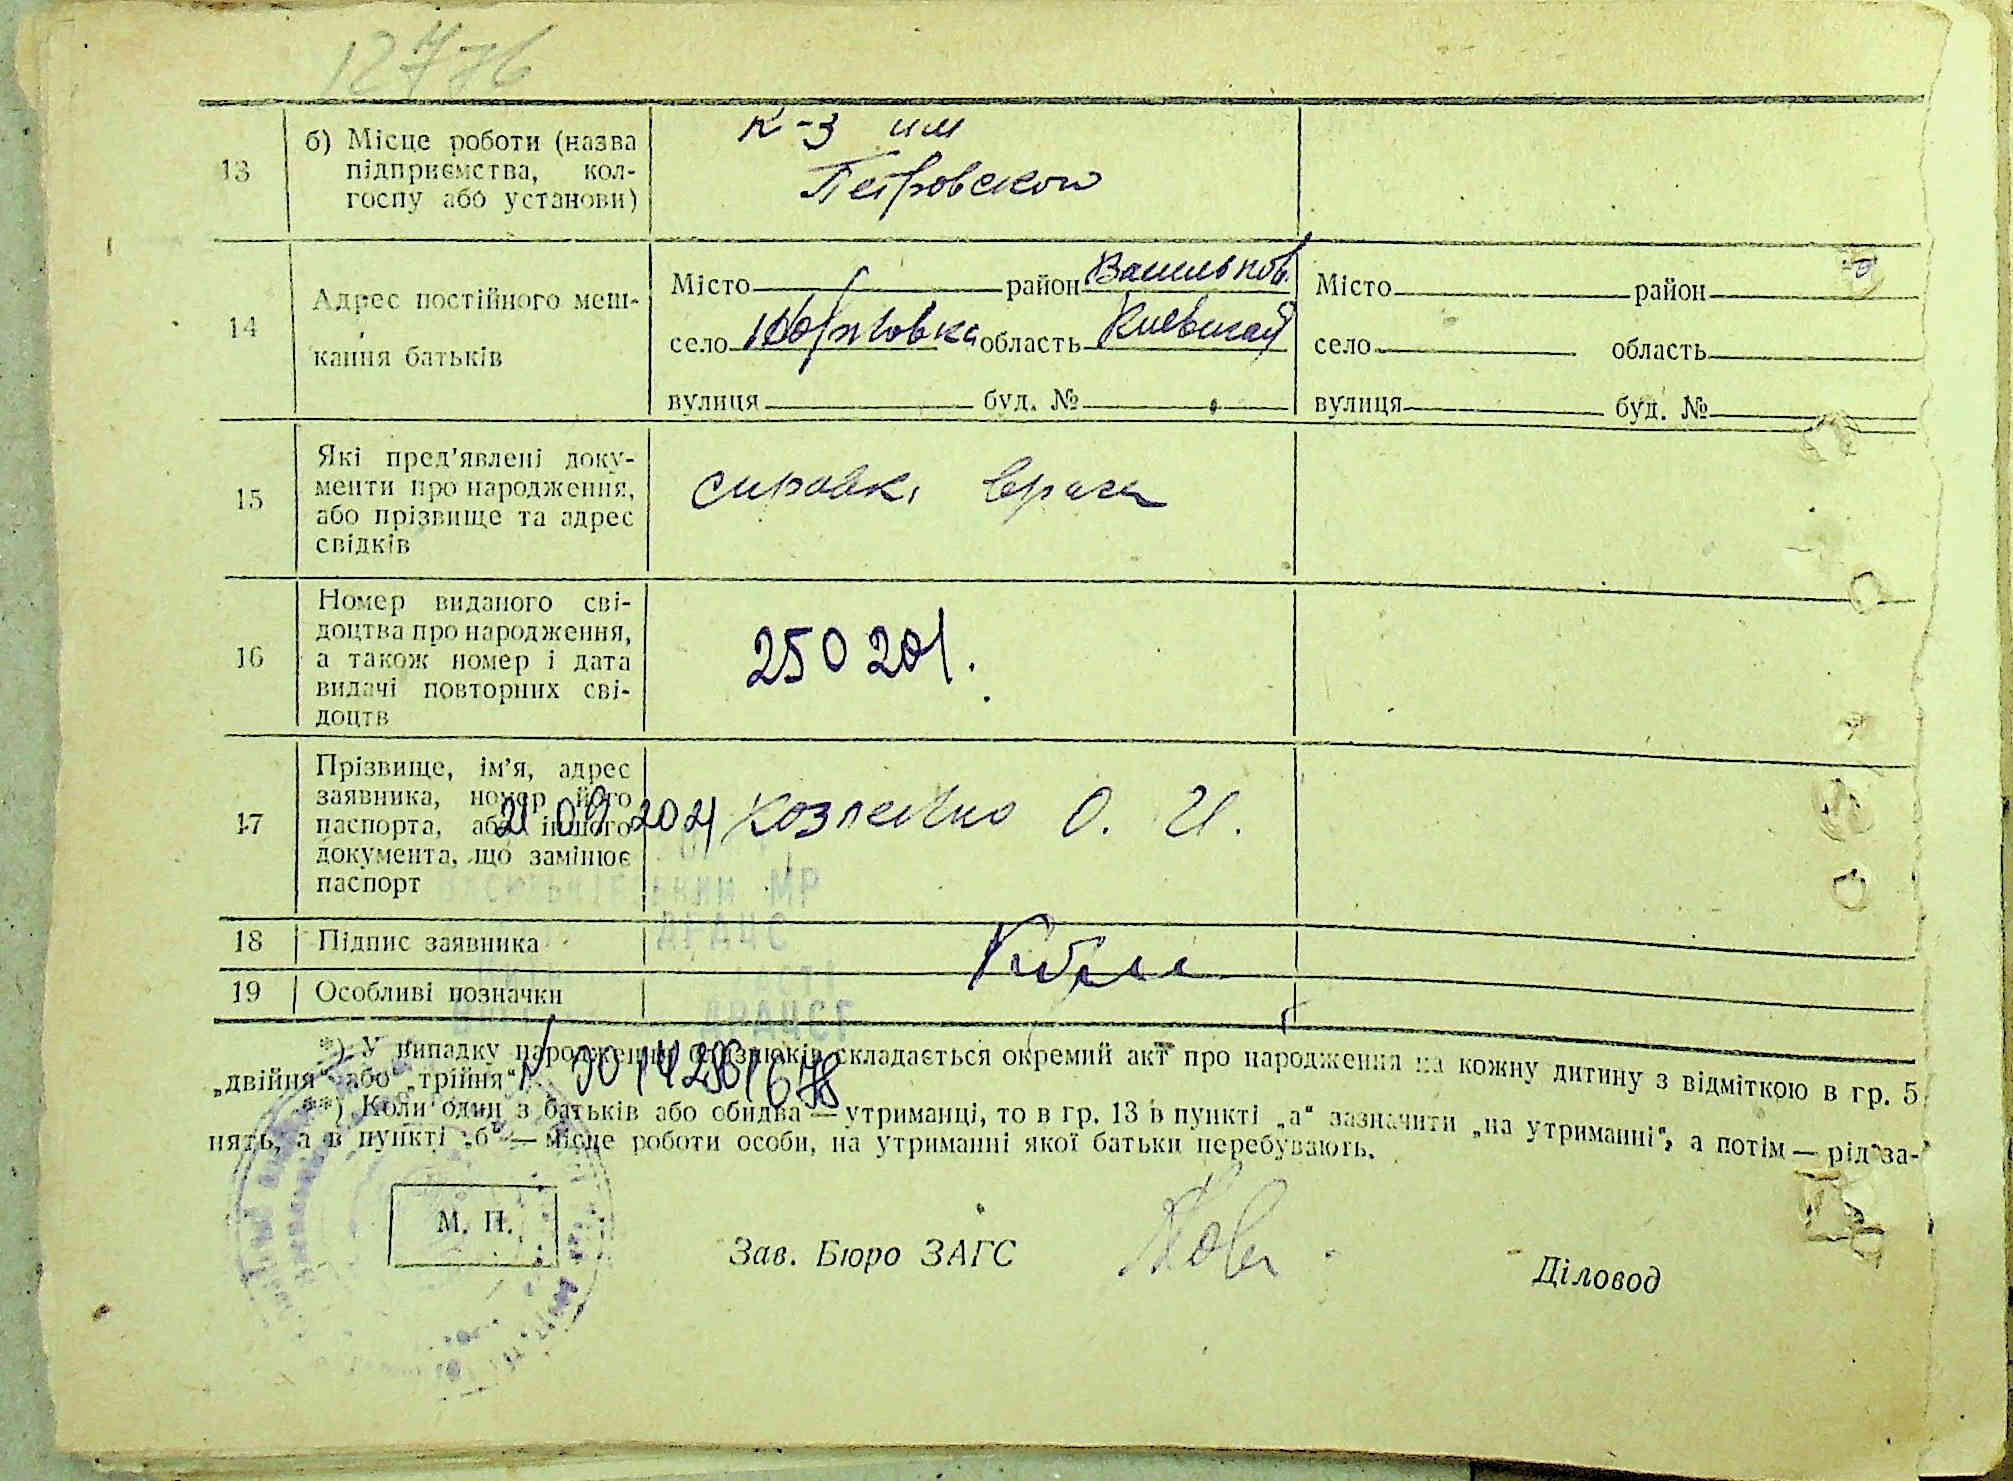 12476
13
б) Місце роботи (назва
підприємства, кол-
госпу або установи)
к-з им
Петровского
14
Адрес постійного меш-
кання батьків
Місто район Васильков.
село область Киевская
вулиця буд. №
Місто район
село область
вулиця буд. №
15
Які пред'явлені доку-
менти про народження,
або прізвище та адрес
свідків
справка врача
16
Номер виданого сві-
доцтва про народження,
а також номер і дата
видачі повторних сві-
доцтв
250 201.
17
Прізвище, ім'я, адрес
заявника, номер його
паспорта, або іншого
документа, що замінює
паспорт
О. И.
21 09 2021
МР
ДРАЦС
18
Підпис заявника
19
Особливі позначки
ДРАЦСГ
*) У випадку народження близнюків складається окремий акт про народження на кожну дитину з відміткою в гр. 5
„двійня“ або „трійня“.
**) Коли один з батьків або обидва — утриманці, то в гр. 13 в пункті „а“ зазначити „на утриманні“, а потім — рід за-
нять, а в пункті „б“ — місце роботи особи, на утриманні якої батьки перебувають.
М. П.
Зав. Бюро ЗАГС
Діловод